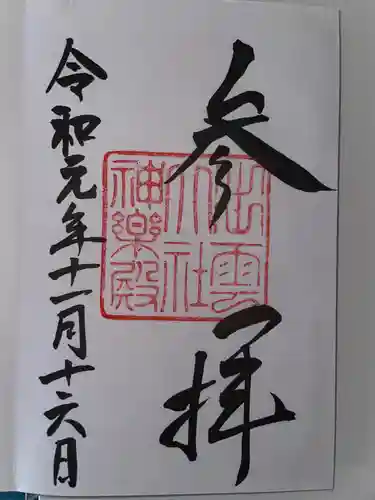 参拝
出雲
大社
神楽殿
令和元年十一月十六日